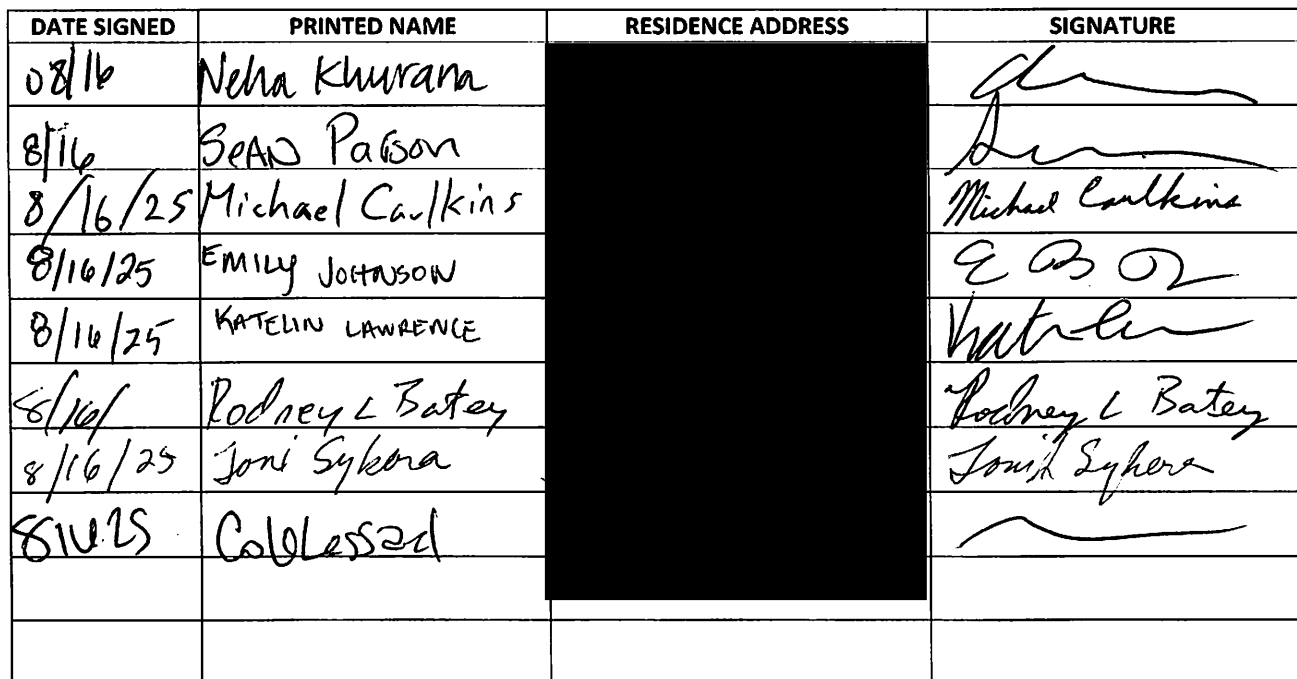 DATE SIGNED PRINTED NAME RESIDENCE ADDRESS SIGNATURE
08/16 Neha Khurana
8/16 SEAN Parson
8/16/25 Michael Caulkins Michael Caulkins
8/16/25 EMILY JOHNSON
8/16/25 KATELIN LAWRENCE
8/16/ Rodney L Batey Rodney L Batey
8/16/25 Joni Sykora Joni Sykora